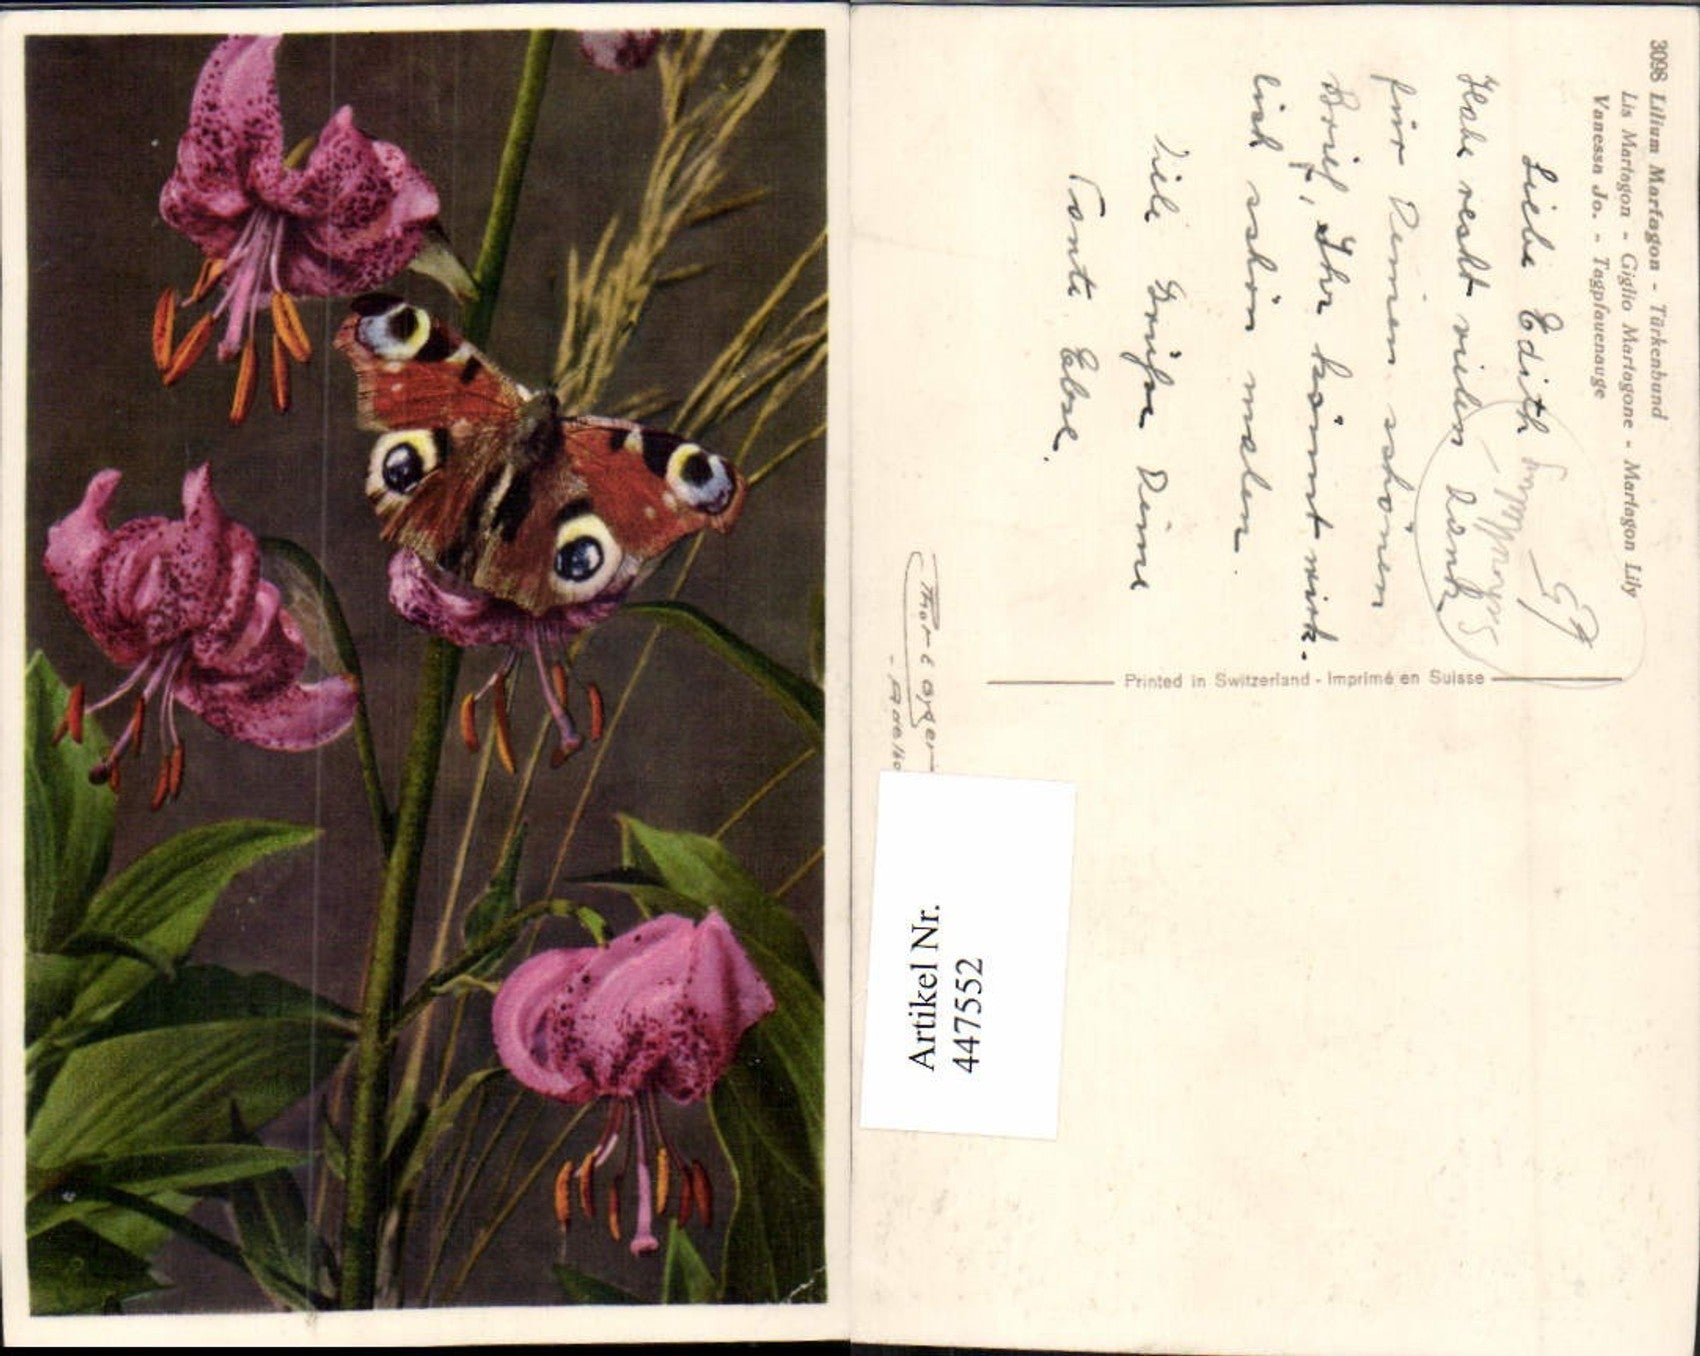 3098 Lilium Martagon - Türkenbund
Lis Martagon - Giglio Martagone - Martagon Lily
Vanessa Jo. - Tagpfauenauge
Liebe Edith
Habe recht vielen Dank
für Deinen schönen
Brief, Ihr könnt wirk-
lich schön malen.
Viele Grüße Deine
Tante Ebse.
Schmetterling
Printed in Switzerland - Imprimé en Suisse
Artikel Nr.
447552